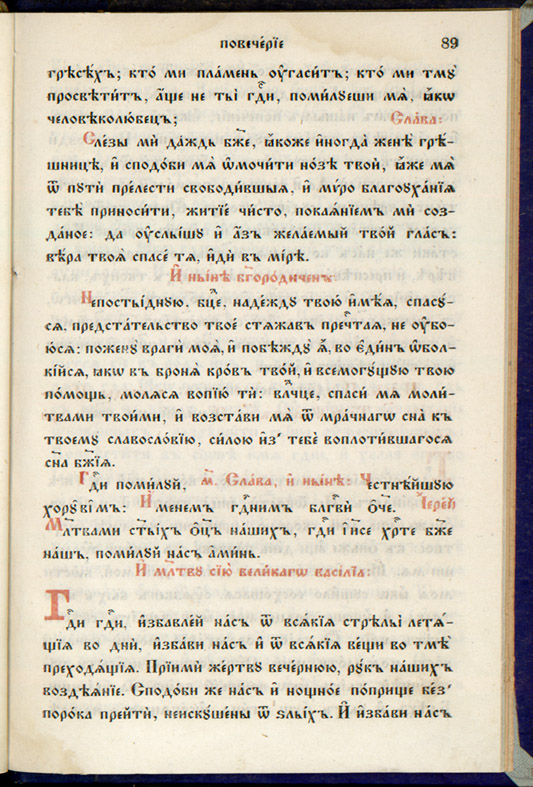 повече́рїе 89
грѣсѣ́хъ; кто́ ми пла́мень ᲂу҆гаси́тъ; кто́ ми тмꙋ̀
просвѣти́тъ, а҆́ще не ты̀ гдⷭ҇и, поми́лꙋеши мѧ̀, ꙗ҆́кѡ
человѣколю́бецъ; Сла́ва:
Сле́зы мѝ да́ждь бж҃е, ꙗ҆́коже и҆ногда̀ женѣ̀ грѣ́-
шницѣ, и҆ сподо́би мѧ̀ ѡ҆мочи́ти но́зѣ твоѝ, ꙗ҆̀же мѧ̀
ѿ пꙋтѝ пре́лести свободи́вшыѧ, и҆ мѵ́ро благоꙋха́нїѧ
тебѣ̀ приноси́ти, житїѐ чи́сто, покаѧ́нїемъ мѝ соз-
да́ное: да ᲂу҆слы́шꙋ и҆ а҆́зъ жела́емый тво́й гла́съ:
вѣ́ра твоѧ̀ спасе́ тѧ, и҆дѝ въ ми́рѣ.
И҆ ны́нѣ бг҃оро́диченъ
Непосты́днꙋю, бцⷣе, наде́ждꙋ твою̀ и҆мѣ́ѧ, спасꙋ́-
сѧ. предста́тельство твоѐ стѧжа́въ пречⷭ҇таѧ, не ᲂу҆бо-
ю́сѧ: поженꙋ̀ врагѝ моѧ̀, и҆ побѣждꙋ̀ ѧ҆̀, во є҆ди́нъ ѡ҆бол-
кі́йсѧ, ꙗ҆́кѡ въ бронѧ̀ кро́въ тво́й, и҆ всемогꙋ́щꙋю твою̀
по́мощь, молѧ́сѧ вопїю́ ти: влⷣчце, спаси́ мѧ моли́-
твами твои́ми, и҆ воз̾ста́ви мѧ̀ ѿ мра́чнагѡ сна̀ къ
твоемꙋ̀ славосло́вїю, си́лою и҆з̾ тебє̀ воплоти́вшагосѧ
сн҃а бж҃їѧ.
Гдⷭ҇и поми́лꙋй, м҃. Сла́ва, и҆ ны́нѣ: Честнѣ́йшꙋю
хорꙋві̑мъ: И҆́менемъ гдⷭ҇нимъ бл҃гвѝ ѻ҆́ч҃е. І҆ере́й
Мл҃твами ст҃ы́хъ ѻ҆ц҃ъ на́шихъ, гдⷭ҇и і҆и҃се хрⷭ҇тѐ бж҃е
на́шъ, поми́лꙋй на́съ а҆ми́нь.
И҆ мл҃твꙋ сїю̀ вели́кагѡ васі́лїа:
Гдⷭ҇и гдⷭ҇и, и҆збавле́й на́съ ѿ всѧ́кїѧ стрѣлы̀ летѧ́-
щїѧ во днѝ, и҆зба́ви на́съ и҆ ѿ всѧ́кїѧ ве́щи во тмѣ̀
преходѧ́щїѧ. Прїимѝ же́ртвꙋ вече́рнюю, рꙋ́къ на́шихъ
воздѣѧ́нїе. Сподо́би же на́съ и҆ нощно́е по́прище без̾
поро́ка прейтѝ, неискꙋше́ны ѿ ѕлы́хъ. И҆ и҆зба́ви на́съ